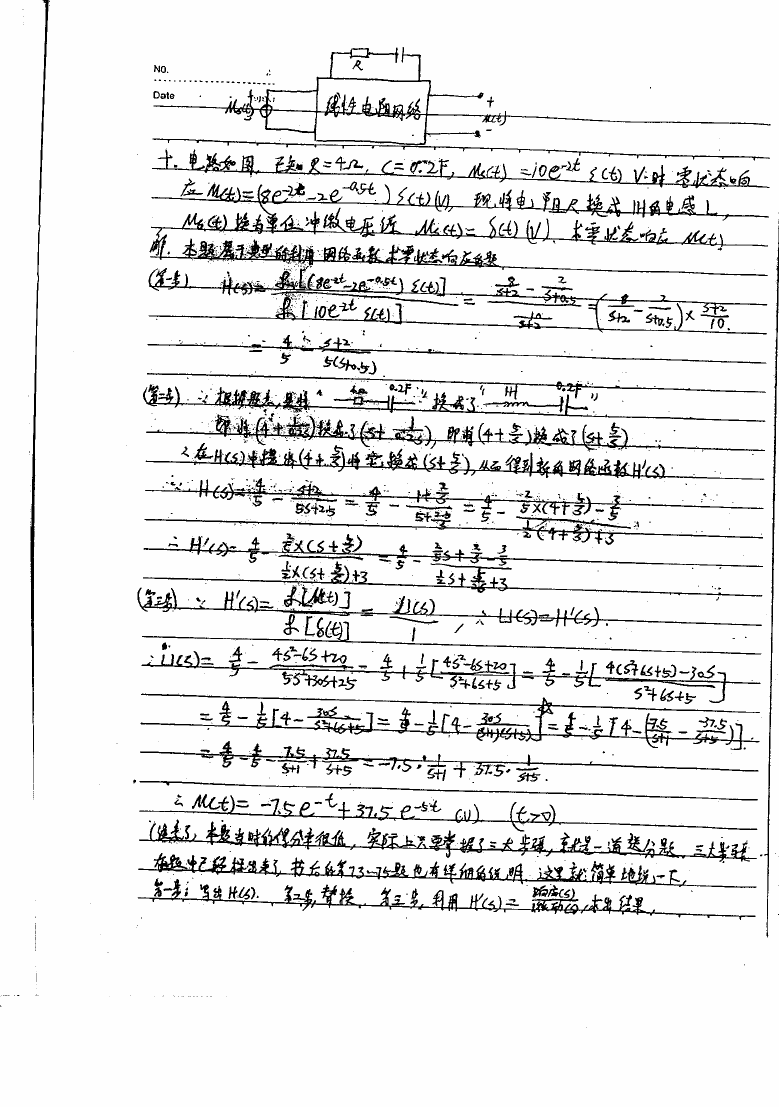 NO.
R
Date
线性电阻网络
+
u(t)
-
十. 电路如图, 已知 R=4Ω, C=0.2F, Us(t)=10e^{-2t} ε(t) V 时 零状态响
应 U(t)=(8e^{-2t}-2e^{-0.5t}) ε(t) (V), 现将电阻R换成1H的电感L,
Us(t)换为单位冲激电压源 Us(t)=δ(t)(V). 求零状态响应 U(t)
解. 本题属于典型的利用网络函数求零状态响应的题
(第一步) H(s)= ℒ[(8e^{-2t}-2e^{-0.5t}) ε(t)] / ℒ[10e^{-2t} ε(t)] = (8/(s+2) - 2/(s+0.5)) / (10/(s+2)) = (8/(s+2) - 2/(s+0.5)) × (s+2)/10
= 4/5 - (s+2)/(5(s+0.5))
(第二步) ∵ 根据题意, 是将 “ 4Ω 0.2F ” 换成了 “ 1H 0.2F ”
即将(4+1/0.2s)换成了(s+1/0.2s), 即将(4+5/s)换成了(s+5/s)
∴在H(s)中提出(4+5/s)将它换成(s+5/s), 从而得到新的网络函数H'(s)
∵ H(s)= 4/5 - (s+2)/(5s+2.5) = 4/5 - (1+2/s)/(5+2.5/s) = 4/5 - (2/5×(4+5/s)-3/5)/(1/2(4+5/s)+3)
∴ H'(s)= 4/5 - (2/5×(s+5/s)-3/5)/(1/2×(s+5/s)+3) = 4/5 - (2/5s+2/s-3/5)/(1/2s+5/2s+3)
(第三步) ∵ H'(s)= ℒ[U(t)]/ℒ[δ(t)] = U(s)/1, ∴ U(s)=H'(s).
∴ U(s)= 4/5 - (4s²-6s+20)/(5s²+30s+25) = 4/5 - 1/5[(4s²-6s+20)/(s²+6s+5)] = 4/5 - 1/5[(4(s²+6s+5)-30s)/(s²+6s+5)]
= 4/5 - 1/5[4-30s/(s²+6s+5)] = 4/5 - 1/5[4-30s/((s+1)(s+5))] = 4/5 - 1/5[4-(7.5/(s+1) - 37.5/(s+5))]
= 4/5 - 4/5 - 7.5/(s+1) + 37.5/(s+5) = -7.5·1/(s+1) + 37.5·1/(s+5).
∴ U(t)= -7.5e^{-t}+37.5e^{-5t} (V) (t>0)
本题当时的得分率很低, 实际上只要掌握了三大步骤, 就是一道送分题. 三大步骤
在题中已经标出来了, 书后的第73-75题也有详细的说明, 这里就简单地说一下,
第一步: 写出H(s). 第二步, 替换. 第三步, 利用 H'(s)= 响应(s)/激励(s), 求出结果.